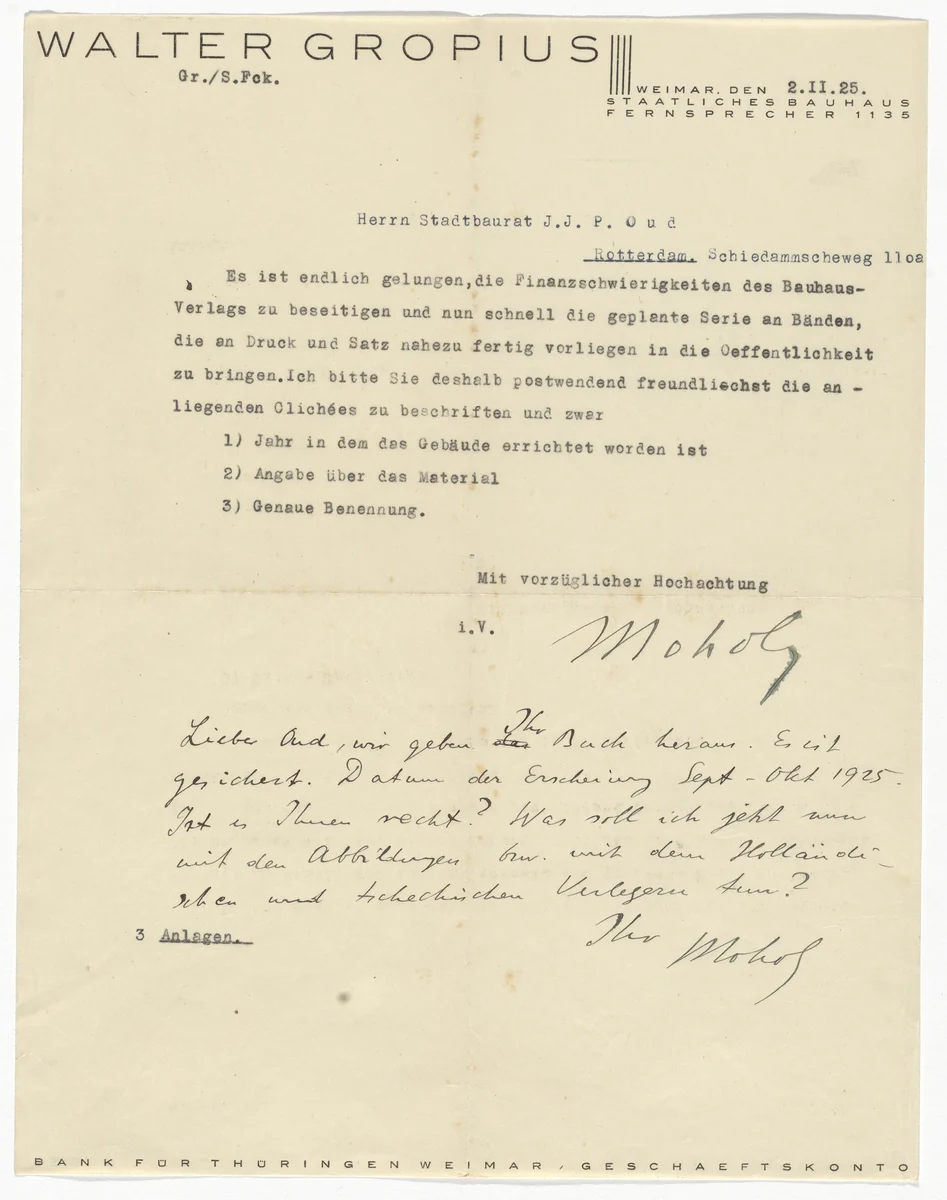 WALTER GROPIUS
Gr./S.Fck.
WEIMAR. DEN 2.II.25.
STAATLICHES BAUHAUS
FERNSPRECHER 1135
Herrn Stadtbaurat J.J. P. O u d
Rotterdam. Schiedammscheweg 110a
Es ist endlich gelungen,die Finanzschwierigkeiten des Bauhaus-
Verlags zu beseitigen und nun schnell die geplante Serie an Bänden,
die an Druck und Satz nahezu fertig vorliegen in die Oeffentlichkeit
zu bringen.Ich bitte Sie deshalb postwendend freundliechst die an -
liegenden Clichées zu beschriften und zwar
1) Jahr in dem das Gebäude errichtet worden ist
2) Angabe über das Material
3) Genaue Benennung.
Mit vorzüglicher Hochachtung
i.V.
Moholy
Lieber Oud, wir geben das Ihr Buch heraus. Es ist
gesichert. Datum der Erscheinung Sept - Okt 1925.
Ist es Ihnen recht? Was soll ich jetzt nun
mit den Abbildungen bzw. mit dem Holländi-
schen und tschechischen Verlegern tun?
Ihr Moholy
3 Anlagen.
BANK FÜR THÜRINGEN WEIMAR, GESCHAEFTSKONTO